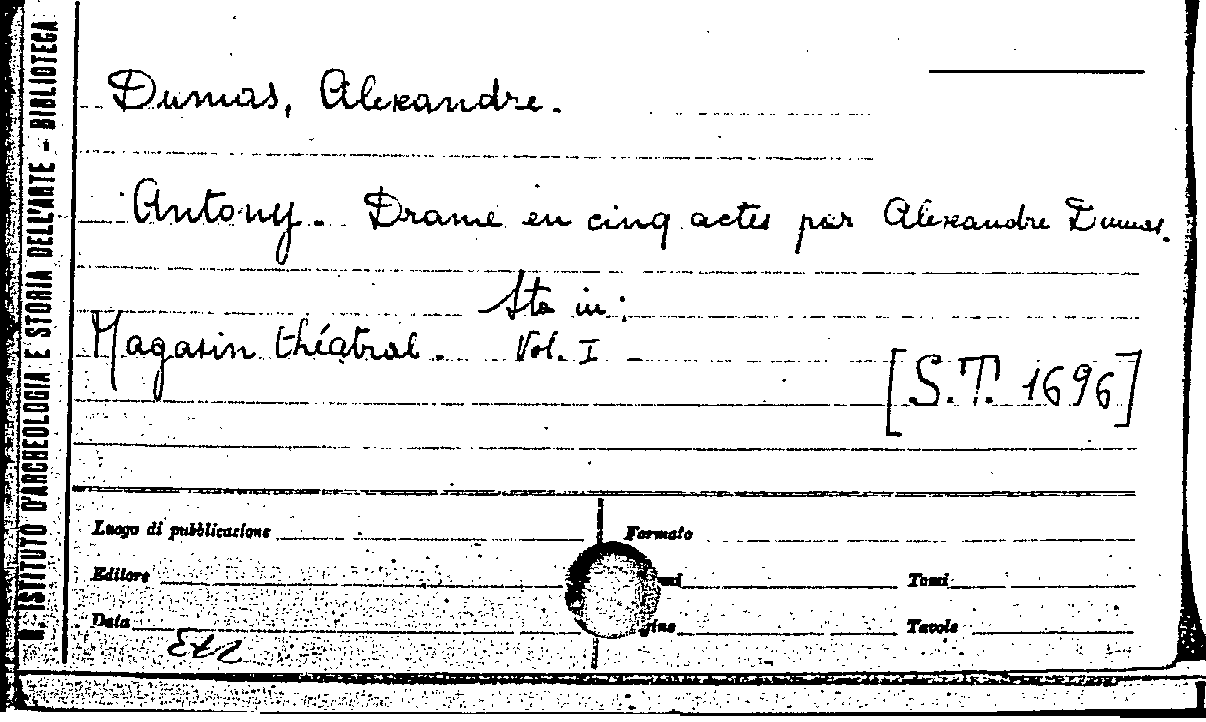 R. ISTITUTO D'ARCHEOLOGIA E STORIA DELL'ARTE - BIBLIOTECA
Dumas, Alexandre.
Antony. Drame en cinq actes par Alexandre Dumas.
Sta in:
Magasin théatral. Vol. I
[S.T. 1696]
Luogo di pubblicazione Formato
Editore Tomi
Data Tavole